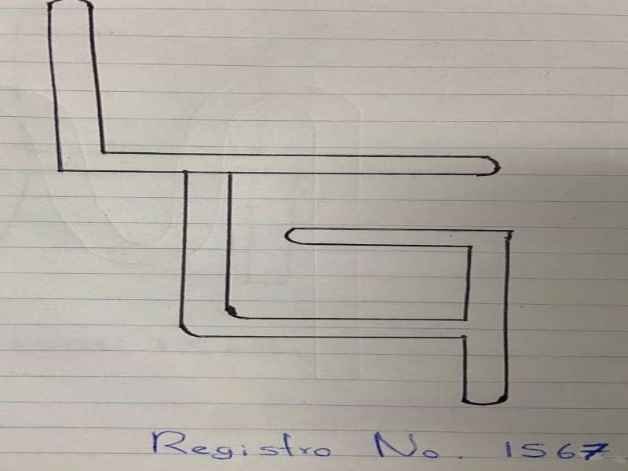 Registro No. 1567